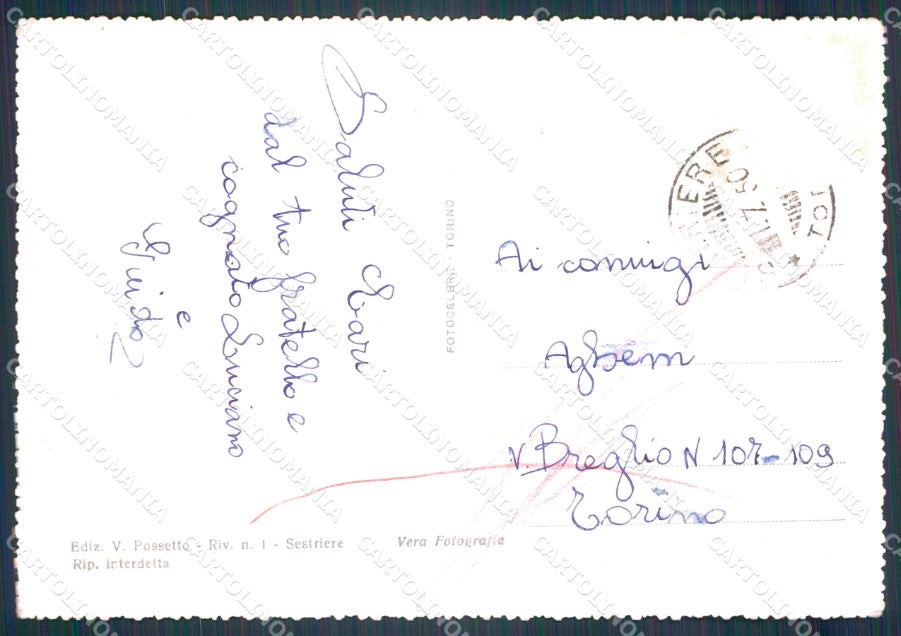 Saluti Cari
dal tuo fratello e
cognato Luciano
e
Guido
FOTOCELERE - TORINO
Ai coniugi
Aghem
V. Breglio N 107-109
Torino
Ediz. V. Possetto - Riv. n. 1 - Sestriere
Rip. interdetta
Vera Fotografia
CARTOLINOMANIA